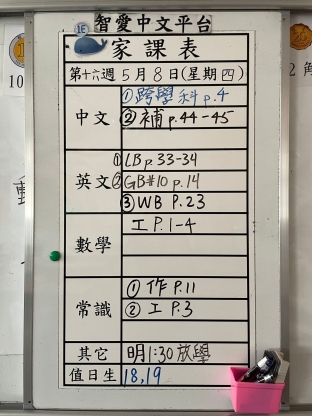 1E
智愛中文平台
家課表
第十六週 5月8日(星期四)
中文
①跨學科 p.4
②補 p.44-45
英文
①LB p.33-34
②GB#10 p.14
③WB P.23
數學
工 P.1-4
常識
①作 P.11
②工 P.3
其它
明1:30放學
值日生
18,19
10
2角